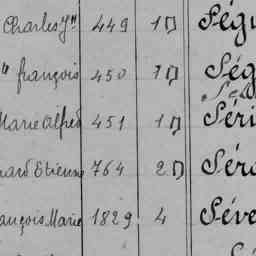 Charles Jn 449 1 D Ségu
" françois 450 1 D Ség
Marie Alfred 451 1 D Séri
nard Etienne 764 2 D Séro
ançois Marie 1829 4 Séve